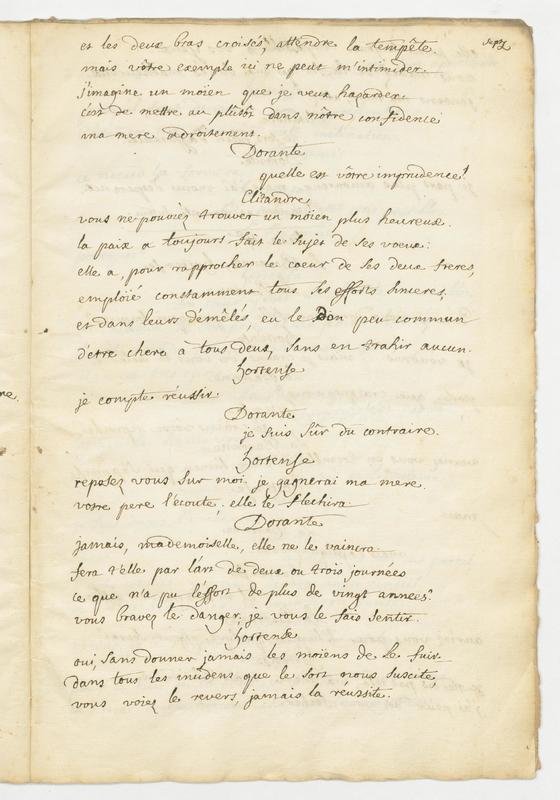 sept
et les deux bras croisés, attendre la tempête.
mais vôtre exemple ici ne peut m'intimider.
j'imagine un moïen que je veux hazarder.
c'est de mettre au plûtôt dans nôtre confidence
ma mere adroitement.
Dorante
quelle est vôtre imprudence!
Clitandre
vous ne pouviez trouver un moïen plus heureux.
la paix a toujours fait le sujet de ses voeux:
elle a, pour rapprocher le coeur de ses deux freres,
emploïé constamment tous ses efforts sinceres.
et dans leurs démêlés, eu le Don peu commun
d'être chere à tous deux, sans en trahir aucun.
hortense
je compte réussir.
Dorante
je suis sûr du contraire.
hortense
reposez vous sur moi. je gagnerai ma mere.
votre pere l'écoute, elle le flechira.
Dorante
jamais, mademoiselle, elle ne le vaincra.
fera t'elle par l'art de deux ou trois journées
ce que n'a pu l'effort de plus de vingt années?
vous bravez le danger. je vous le fais sentir.
hortense
oui, sans donner jamais les moïens de le fuir.
dans tous les incidens que le sort nous suscite,
vous voïez le revers, jamais la réussite.